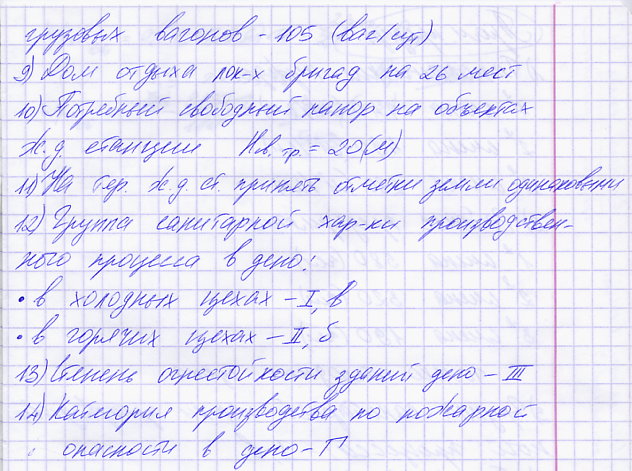 грузовых вагонов - 105 (ваг/сут)
9) Дом отдыха лок-х бригад на 26 мест
10) Потребный свободный напор на объектах
ж.д. станции Нв.тр. = 20 (м)
11) На тер. ж.д. ст. принять отметки земли одинаковыми
12) Группа санитарной хар-ки производствен-
ного процесса в депо:
• в холодных цехах - I, в
• в горячих цехах - II, б
13) Степень огнестойкости зданий депо - III
14) Категория производства по пожарной
опасности в депо - Г